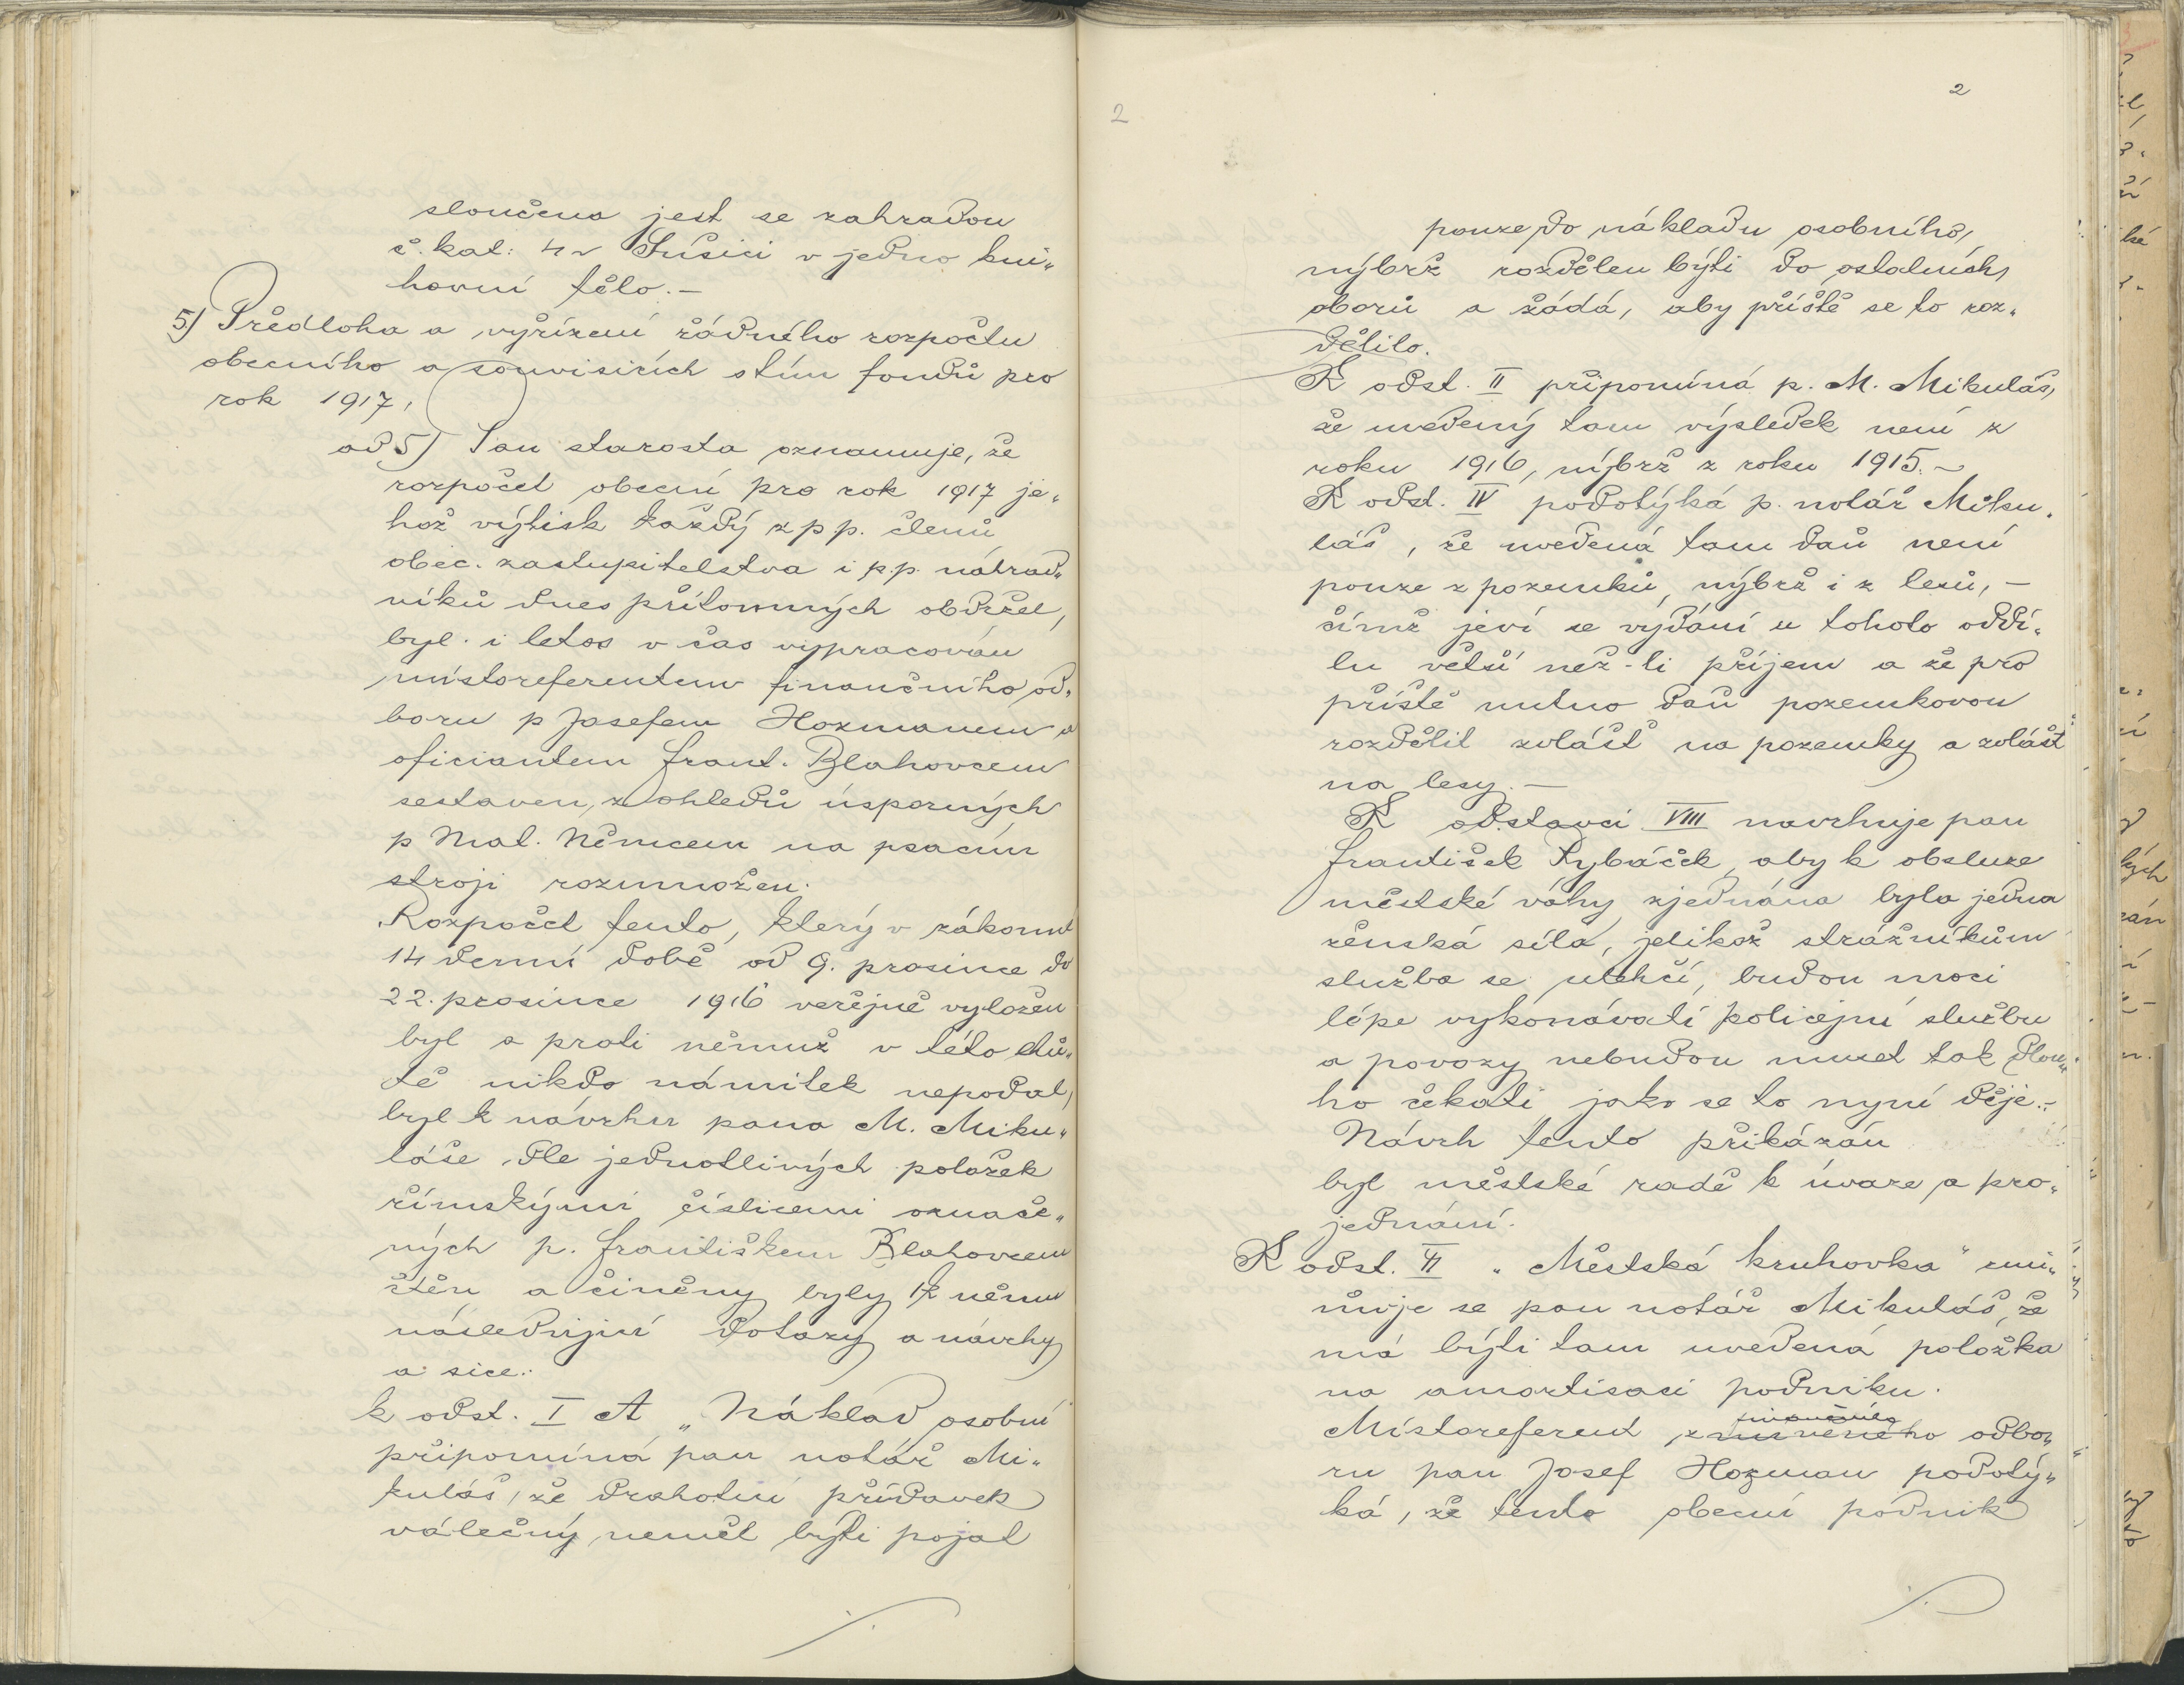 sloučena jest se zahradou
č. kat: 4 v Sušici v jedno kni„
hovní tělo.—
5) Předloha a vyřízení řádného rozpočtu
obecního a souvisicích stím fondů pro
rok 1917,
ad 5) Pan starosta oznamuje, že
rozpočet obecní pro rok 1917 je„
hož výtisk každý z pp. členů
obec. zastupitelstva i p.p. náhrad„
níků dnes přítomných obdržel,
byl i letos v čas vypracován
místoreferentem finančního od„
boru p Josefem Hozmanem a
oficiantem Frant. Blahovcem
sestaven, z ohledů úsporných
p Mat. Němcem na psacím
stroji rozmnožen.
Rozpočet tento, který v zákonné
14 denní době od 9. prosince do
22. prosince 1916 veřejně vyložen
byl a proti němuž v této lhů„
tě nikdo námitek nepodal,
byl k návrhu pana M. Miku„
láše dle jednotlivých položek
římskými číslicemi označe„
ných p. Františkem Blahovcem
čtěn a činěny byly k němu
následující dotazy a návrhy
a sice:
k odst. I A „Náklad osobní
připomíná pan notář Mi„
kuláš, že drahotní přídavek
válečný neměl býti pojat
2
2
pouze do nákladu osobního,
nýbrž rozdělen býti do ostatních
oborů a žádá, aby příště se to roz„
dělilo.
K odst. II připomíná p. M. Mikuláš,
že uvedený tam výsledek není z
roku 1916, nýbrž z roku 1915.—
K odst. IV podotýká p. notář Miku„
láš, že uvedená tam daň není
pouze z pozemků, nýbrž i z lesů, —
čímž jeví se vydání u tohoto oddí„
lu větší než-li příjem a že pro
příště nutno daň pozemkovou
rozdělit zvlášť na pozemky a zvlášť
na lesy.—
K odstavci VIII navrhuje pan
František Rybáček, aby k obsluze
městské váhy zjednána byla jedna
ženská síla, jelikož strážníkům
služba se ulehčí, budou moci
lépe vykonávati policejní službu
a povozy nebudou muset tak dlou„
ho čekati jako se to nyní děje.—
Návrh tento přikázán
byl městské radě k úvaze a pro„
jednání.
K odst. VI „Městská kruhovka" zmi„
ňuje se pan notář Mikuláš, že
má býti tam uvedená položka
na amortisaci podniku.
finančního
Místoreferent odbo„
ru pan Josef Hozman podotý„
ká, že tento obecní podnik